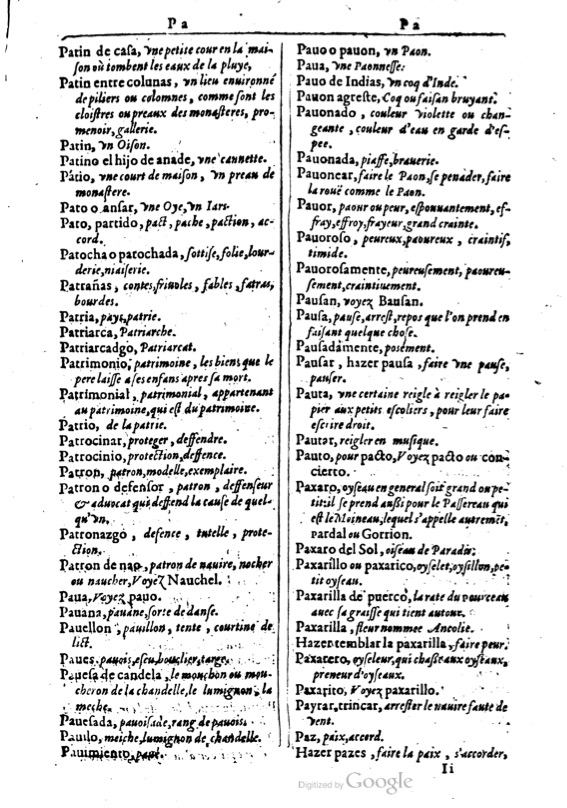 Pa
Pa
Patin de casa, vne petite cour en la mai-
son où tombent les eaux de la pluye,
Patin entre colunas, vn lieu enuironné
de piliers ou colomnes, comme sont les
cloistres ou preaux des monasteres, pro-
menoir, gallerie.
Patin, vn Oison.
Patino el hijo de anade, vne cannette.
Pátio, vne court de maison, vn preau de
monastere.
Pato o ansar, vne Oye, vn Iars.
Pato, partido, pact, pache, paction, ac-
cord.
Patocha o patochada, sottise, folie, lour-
derie, niaiserie.
Patrañas, contes, friuoles, fables, fatras,
bourdes.
Patria, pays, patrie.
Patriarca, Patriarche.
Patriarcadgo, Patriarcat.
Patrimonio, patrimoine, les biens que le
pere laisse a ses enfans apres sa mort.
Patrimonial, patrimonial, appartenant
au patrimoine, qui est du patrimoine.
Patrio, de la patrie.
Patrocinar, proteger, deffendre.
Patrocinio, protection, deffence.
Patron, patron, modelle, exemplaire.
Patron o defensor, patron, deffenseur
& aduocat qui deffend la cause de quel-
qu'vn.
Patronazgo, defence, tutelle, prote-
ction.
Patron de nao, patron de nauire, nocher
ou naucher, Voyez Nauchel.
Paua, Voyez pauo.
Pauana, pauane, sorte de danse.
Pauellon, pauillon, tente, courtine de
lict.
Paues, pauois, escu, bouclier, targe.
Pauesa de candela, le mouchon ou mou-
cheron de la chandelle, le lumignon, la
meche.
Pauesada, pauoisade, rang de pauois.
Pauilo, meiche, lumignon de chandelle.
Pauimiento, paué.
Pauo o pauon, vn Paon.
Paua, vne Paonnesse.
Pauo de Indias, vn coq d'Inde.
Pauon agreste, Coq ou faisan bruyant.
Pauonado, couleur violette ou chan-
geante, couleur d'eau en garde d'es-
pee.
Pauonada, piaffe, brauerie.
Pauonear, faire le Paon, se penader, faire
la rouë comme le Paon.
Pauor, paour ou peur, espouuantement, ef-
fray, effroy, frayeur, grand crainte.
Pauoroso, peureux, paoureux, craintif,
timide.
Pauorosamente, peureusement, paoureu-
sement, craintiuement.
Pausan, voyez Bausan.
Pausa, pause, arrest, repos que l'on prend en
faisant quelque chose.
Pausadámente, posément.
Pausar, hazer pausa, faire vne pause,
pauser.
Pauta, vne certaine reigle à reigler le pa-
pier aux petits escoliers, pour leur faire
escrire droit.
Pautar, reigler en musique.
Pauto, pour pacto, Voyez pacto ou con-
cierto.
Paxaro, oyseau en general soit grand ou pe-
tit: il se prend aussi pour le Passereau qui
est le Moineau, lequel s'appelle autremēt,
pardal ou Gorrion.
Paxaro del Sol, oiseau de Paradis.
Paxarillo ou paxarico, oyselet, oysillon, pe-
tit oyseau.
Paxarilla de puerco, la rate du pourceau
auec sa graisse qui tient autour.
Paxarilla, fleur nommee Ancolie.
Hazer temblar la paxarilla, faire peur.
Paxarero, oyseleur, qui chasse aux oyseaux,
preneur d'oyseaux.
Paxarito, Voyez paxarillo.
Payrar, trincar, arrester le nauire faute de
vent.
Paz, paix, accord.
Hazer pazes, faire la paix, s'accorder,
Ii
Digitized by Google